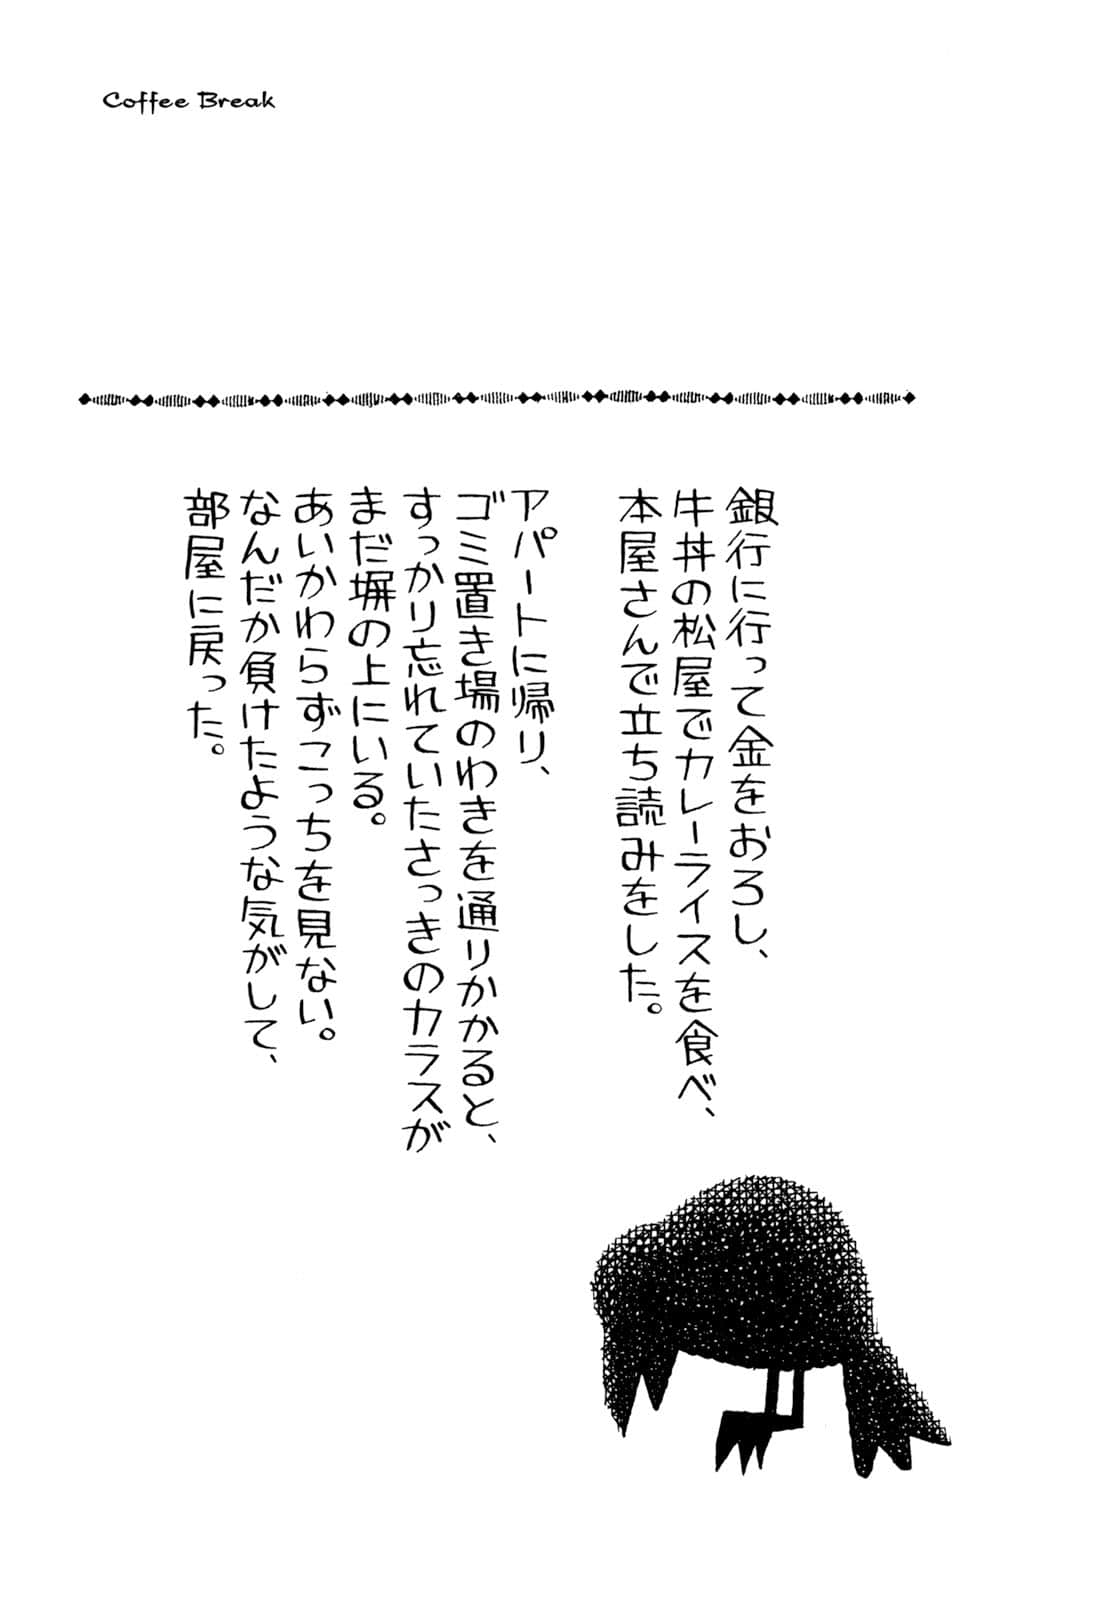 Coffee Break
銀行に行って金をおろし、
牛丼の松屋でカレーライスを食べ、
本屋さんで立ち読みをした。
アパートに帰り、
ゴミ置き場のわきを通りかかると、
すっかり忘れていたさっきのカラスが
まだ塀の上にいる。
あいかわらずこっちを見ない。
なんだか負けたような気がして、
部屋に戻った。